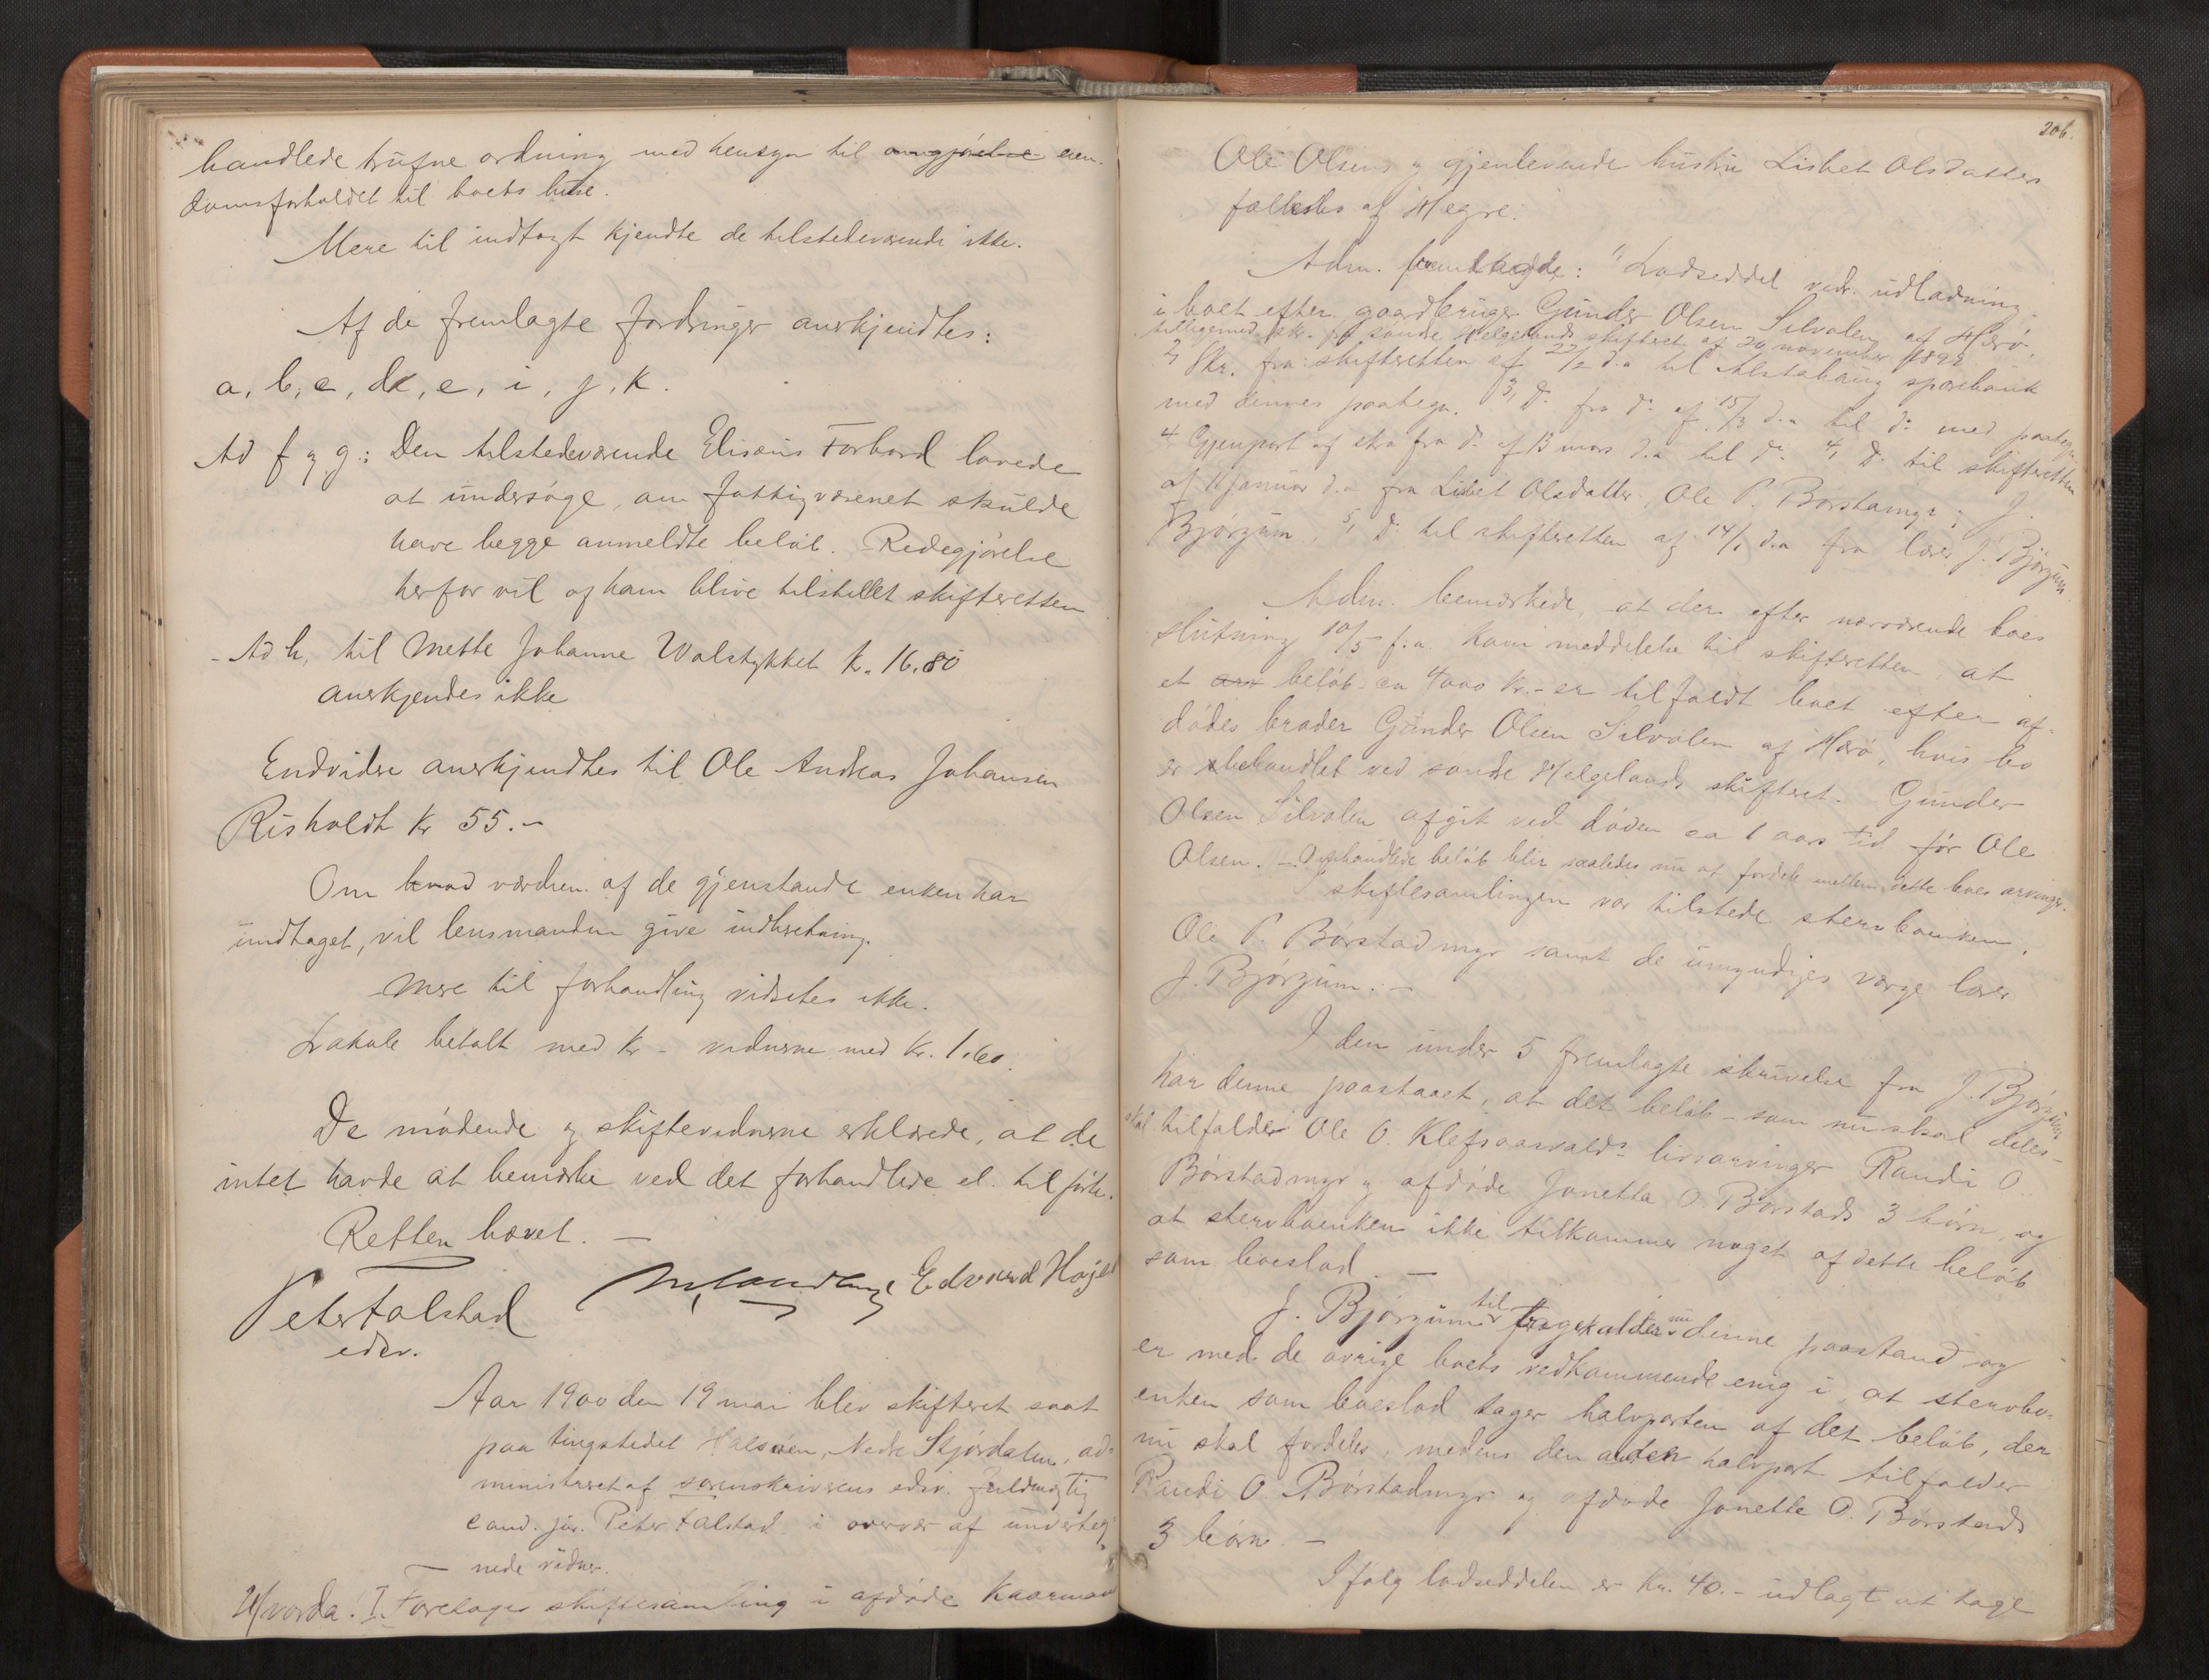 handlede trufne ordning med hensyn til omgjørelse eien-
domsforholdet til boets huse.
Mere til indtægt kjendte de tilstedeværende ikke.
Af de fremlagte fordringer anerkjendtes:
a, b, c, d, e, i, j, k.
Ad f og g: Den tilstedeværende Elisæus Forbord lovede
at undersøge, om fattigvæsenet skulde
have begge anmeldte beløb. Redegjørelse
herfor vil af ham blive tilstillet skifteretten
Ad h, til Mette Johanne Volstykket kr. 16.80
anerkjendes ikke
Endvidere anerkjendtes til Ole Andreas Johansen
Risholdt kr 55.-
Om hvad værdien af de gjenstande enken har
undtaget, vil lensmanden give indberetning.
Mere til forhandling vidstes ikke.
Lokale betalt med kr - vidnerne med kr. 1.60.
De mødende og skiftevidnerne erklærede, at de
intet havde at bemærke ved det forhandlede el. tilførte.
Retten hævet. —
Peter Falstad Edvard Hojem
edsv.
Aar 1900 den 19 mai blev skifteret sat
paa tingstedet Halsøen, Nedre Stjørdalen, ad-
ministreret af sorenskriverens edsv. fuldmægtig
cand. jur. Peter Falstad i overvær af underteg-
nede vidner.
Hvorda: I. Foretages skiftesamling i afdøde Kaarmand
206.
Ole Olsens og gjenlevende hustru Lisbet Olsdatters
fællesbo af Hegre.
Adm. fremlagde: 1, Lodseddel vedr. udlodning
i boet efter gaardbruger Gunder Olsen Silvalen af Herø,
tilligemed skr. fra søndre Helgelands skifteret af 20 november 1899
2, Skr. fra skifteretten af 22/2 d.a til Alstahaug sparebank
med dennes paategn. 3, Do fra do af 15/3 d.a til do med paategn.
4 Gjenpart af skr fra do af 13 mars d.a til do 4, Do til skifteretten
af 11 januar d.a fra Lisbet Olsdatter, Ole P. Børstadmyr og J.
Bjørgum, 5, Do til skifteretten af 14/1 d.a fra lærer J. Bjørgum.
Adm. bemærkede, at der efter nærværende boes
slutning 10/5 f.a. kom meddelelse til skifteretten, at
et arv beløb - ca 4000 kr. - er tilfaldt boet efter af-
dødes broder Gunder Olsen Silvalen af Herø, hvis bo
er behandlet ved søndre Helgelands skifteret. Gunder
Olsen Silvalen afgik ved døden ca 1 aars tid før Ole
Olsen. - Omhandlede beløb blir saaledes nu at fordele mellem dette boes arvinger.
I skiftesamlingen var tilstede stervboenken,
Ole P. Børstadmyr samt de umyndiges værge lærer
J. Bjørgum. -
I den under 5 fremlagte skrivelse fra J. Bjørgum
har denne paastaaet, at det beløb - som nu skal deles -
skal tilfalder Ole O. Klefsaasvalds livsarvinger Randi O.
Børstadmyr og afdøde Jonetta O. Børstads 3 børn, og
at stervboenken ikke tilkommer noget af dette beløb
som boeslod. —
J. Bjørgum til fragekalder nu denne paastand og
er med de øvrige boets vedkommende enig i, at stervbo-
enken som boeslod tager halvparten af det beløb, der
nu skal fordeles, medens den anden halvpart tilfalder
Randi O. Børstadmyr og afdøde Jonetta O. Børstads
3 børn. -
Ifølg lodseddelen er kr. 40.- udlagt at tage